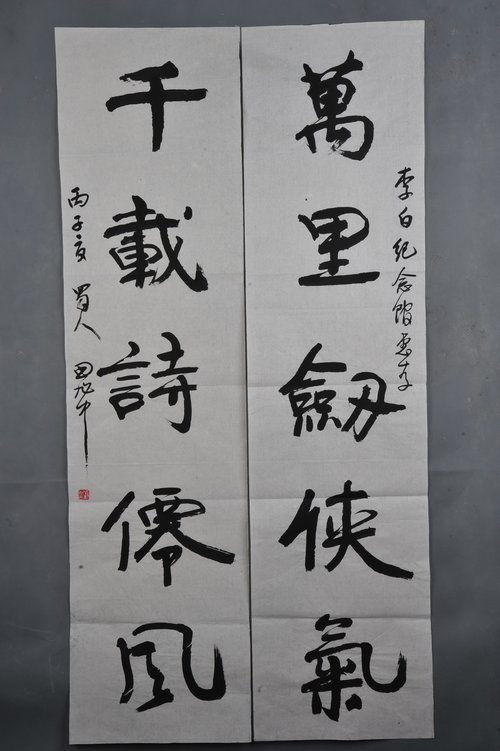 李白紀念館惠存
萬里劔俠氣
千載詩僊風
丙子夏 蜀人 田旭中